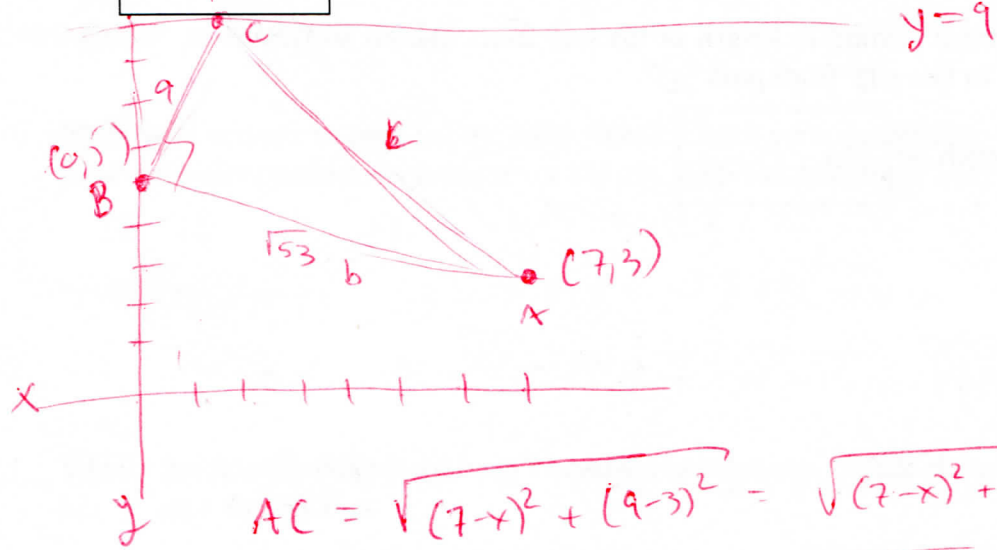 y = 9
C
a
(0,5)
B
√53
b
(7,3)
A
x
y
AC = √((7-x)² + (9-3)²) = √((7-x)² +